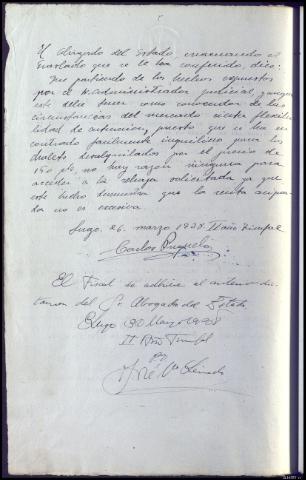 El Abogado del Estado, evacuando el
traslado que se le ha conferido, dice:
Que partiendo de los hechos expuestos
por el Administrador judicial, y aunque
este debe tener como conocedor de las
circunstancias del mercado cierta flexibi-
lidad de actuacion, puesto que se ha en-
contrado facilmente inquilino para los
chalets desalquilados por el precio de
150 pts, no hay razón ninguna para
acceder a la rebaja solicitada ya que
este hecho demuestra que la renta asigna-
da no es excesiva.
Lugo, 26. marzo 1938. II Año Triunfal
Carlos
El Fiscal se adhiere al anterior dic-
tamen del Sr. Abogado del Estado
Lugo 30 Marzo 1938
II Año Triunfal
José